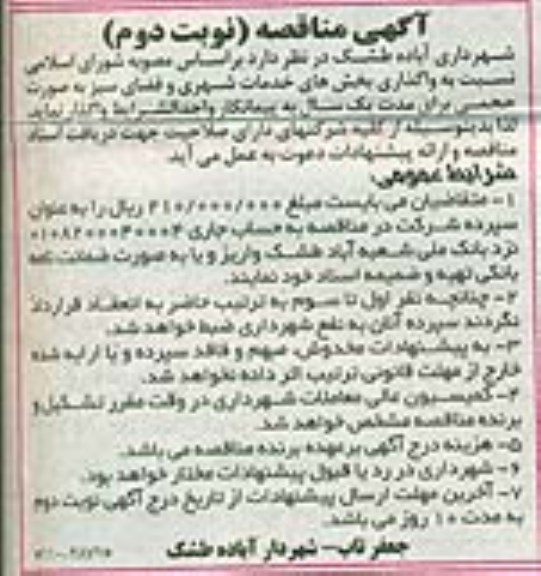 آگهی مناقصه (نوبت دوم)
شهرداری آباده طشک در نظر دارد براساس مصوبه شورای اسلامی
نسبت به واگذاری بخش های خدمات شهری و فضای سبز به صورت
حجمی برای مدت یک سال به پیمانکار واجدالشرایط واگذار نماید
لذا بدینوسیله از کلیه شرکتهای دارای صلاحیت جهت دریافت اسناد
مناقصه و ارائه پیشنهادات دعوت به عمل می آید.
شرایط عمومی:
۱- متقاضیان می بایست مبلغ ۲۱۰/۰۰۰/۰۰۰ ریال را به عنوان
سپرده شرکت در مناقصه به حساب جاری
نزد بانک ملی شعبه آباد طشک واریز و یا به صورت ضمانت نامه
بانکی تهیه و ضمیمه اسناد خود نمایند.
۲- چنانچه نفر اول تا سوم به ترتیب حاضر به انعقاد قرارداد
نگردند سپرده آنان به نفع شهرداری ضبط خواهد شد.
۳- به پیشنهادات مخدوش، مبهم و فاقد سپرده و یا ارایه شده
خارج از مهلت قانونی ترتیب اثر داده نخواهد شد.
۴- کمیسیون عالی معاملات شهرداری در وقت مقرر تشکیل و
برنده مناقصه مشخص خواهد شد.
۵- هزینه درج آگهی برعهده برنده مناقصه می باشد.
۶- شهرداری در رد یا قبول پیشنهادات مختار خواهد بود.
۷- آخرین مهلت ارسال پیشنهادات از تاریخ درج آگهی نوبت دوم
به مدت ۱۰ روز می باشد.
جعفر تاب- شهردار آباده طشک